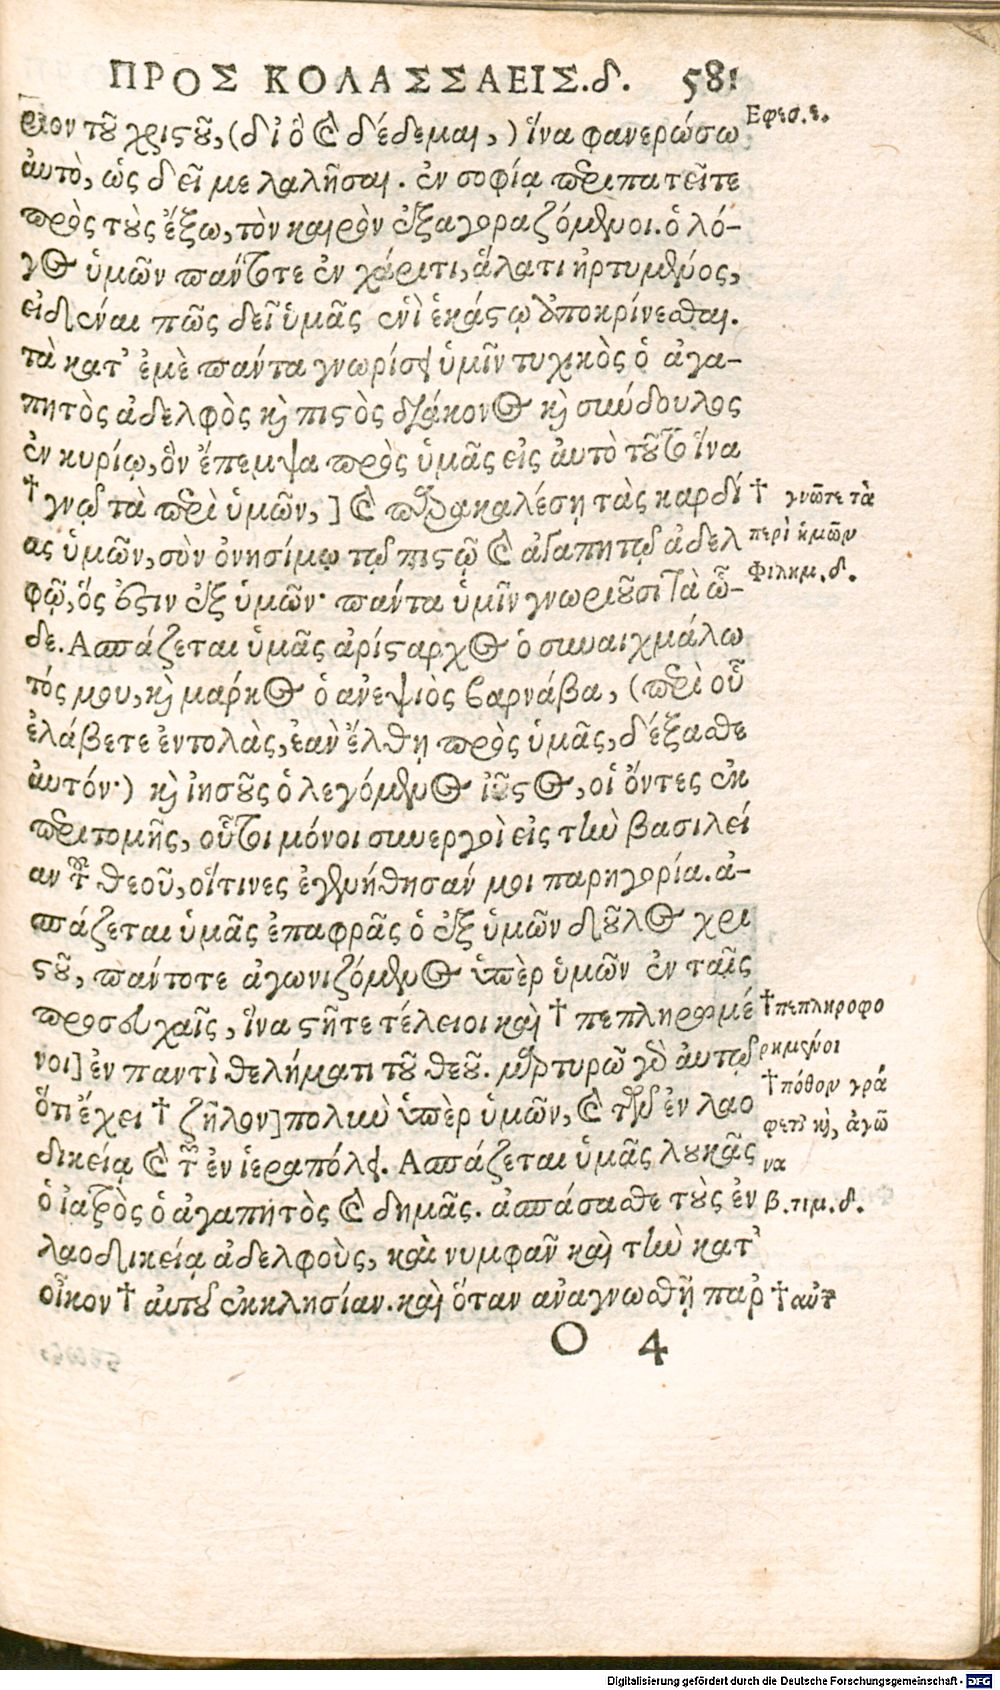 ΠΡΟΣ ΚΟΛΑΣΣΑΕΙΣ.δ. 581
ριον τοῦ χριστοῦ, (δι ὃ καὶ δέδεμαι,) ἵνα φανερώσω
Εφεσ.ε.
ἀυτὸ, ὡς δεῖ με λαλῆσαι. ἐν σοφίᾳ περιπατεῖτε
πρὸς τοὺς ἔξω, τὸν καιρὸν ἐξαγοραζόμενοι. ὁ λό-
γος ὑμῶν πάντοτε ἐν χάριτι, ἅλατι ἠρτυμένος,
εἰδέναι πῶς δεῖ ὑμᾶς ἑνὶ ἑκάστῳ ἀποκρίνεσθαι.
τὰ κατ' ἐμὲ πάντα γνωρίσει ὑμῖν τυχικὸς ὁ ἀγα-
πητὸς ἀδελφὸς καὶ πιστὸς διάκονος καὶ σύνδουλος
ἐν κυρίῳ, ὃν ἔπεμψα πρὸς ὑμᾶς εἰς ἀυτὸ τοῦτο ἵνα
† γνῷ τὰ περὶ ὑμῶν, ] καὶ παρακαλέσῃ τὰς καρδί
† γνῶτε τὰ
περὶ ἡμῶν
ας ὑμῶν, σὺν ὀνησίμῳ τῷ πιστῷ καὶ ἀγαπητῷ ἀδελ
Φιλημ.δ.
φῷ, ὅς ἐστιν ἐξ ὑμῶν· πάντα ὑμῖν γνωριοῦσι τὰ ὧ-
δε. Ασπάζεται ὑμᾶς ἀρίσταρχος ὁ συναιχμάλω
τός μου, καὶ μαρκος ὁ ανεψιὸς βαρνάβα, (περὶ οὗ
ἐλάβετε ἐντολὰς, ἐὰν ἔλθῃ πρὸς ὑμᾶς, δέξασθε
ἀυτόν·) καὶ ἰησοῦς ὁ λεγόμενος ἰοῦστος, οἱ ὄντες ἐκ
περιτομῆς, οὗτοι μόνοι συνεργοὶ εἰς τὴν βασιλεί
αν τοῦ θεοῦ, οἵτινες ἐγενήθησάν μοι παρηγορία. ἀ-
σπάζεται ὑμᾶς ἐπαφρᾶς ὁ ἐξ ὑμῶν δοῦλος χρι
στοῦ, πάντοτε ἀγωνιζόμενος ὑπὲρ ὑμῶν ἐν ταῖς
προσευχαῖς, ἵνα στῆτε τέλειοι καὶ † πεπληρωμέ
†πεπληροφο
ρημένοι
νοι] ἐν παντὶ θελήματι τοῦ θεοῦ. μαρτυρῶ γὰρ ἀυτῷ
ὅτι ἔχει † ζῆλον] πολὺν ὑπὲρ ὑμῶν, καὶ τῶν ἐν λαο
†πόθον γρά
φεται καὶ, ἀγῶ
να
δικείᾳ καὶ τῶν ἐν ἱεραπόλει. Ασπάζεται ὑμᾶς λουκᾶς
ὁ ἰατρὸς ὁ ἀγαπητὸς καὶ δημᾶς. ἀσπάσασθε τοὺς ἐν
β.τιμ.δ.
λαοδικείᾳ ἀδελφοὺς, καὶ νυμφᾶν καὶ τὴν κατ'
οἶκον † ἀυτοῦ ἐκκλησίαν. καὶ ὅταν ἀναγνωσθῇ παρ
O 4
Digitalisierung gefördert durch die Deutsche Forschungsgemeinschaft - DFG